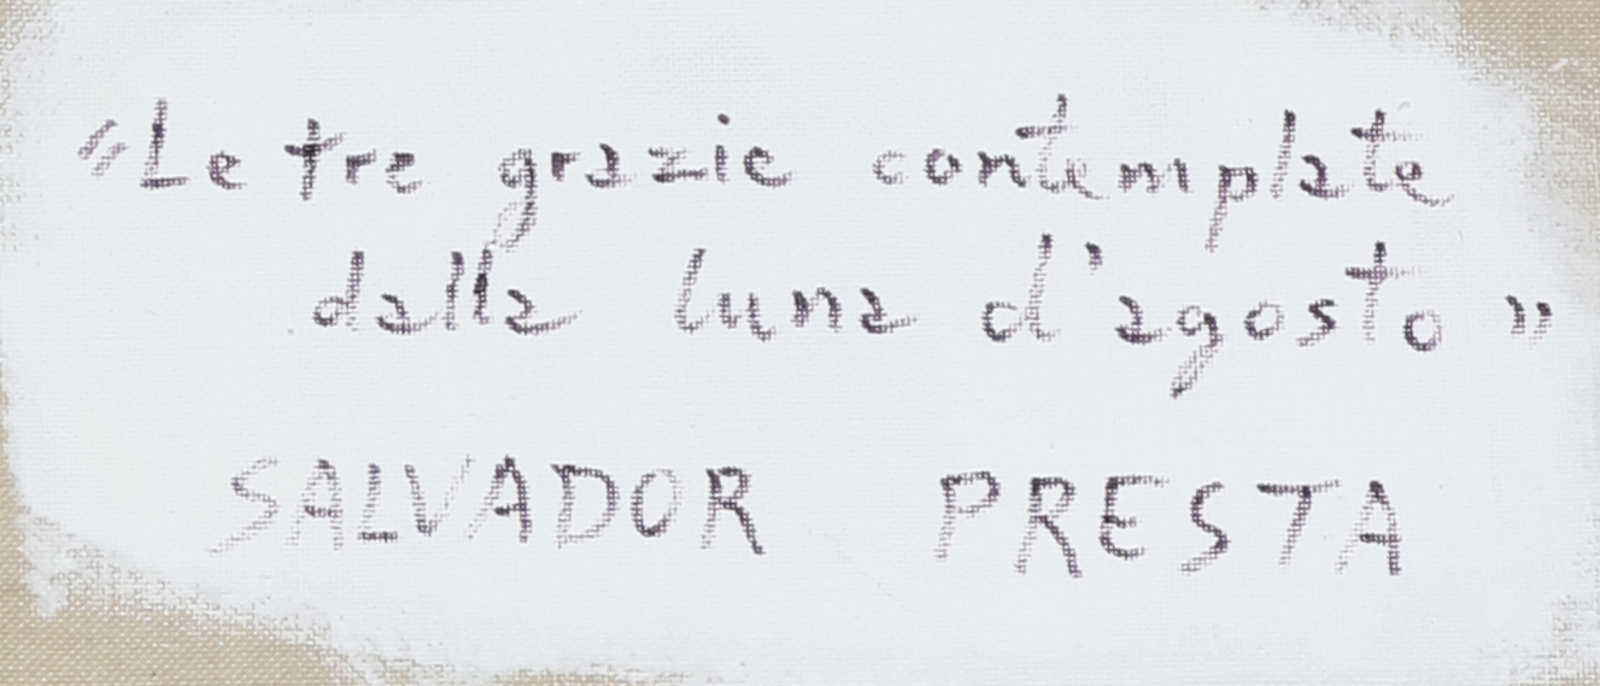 "Le tre grazie contemplate
dalla luna d'agosto"
SALVADOR PRESTA